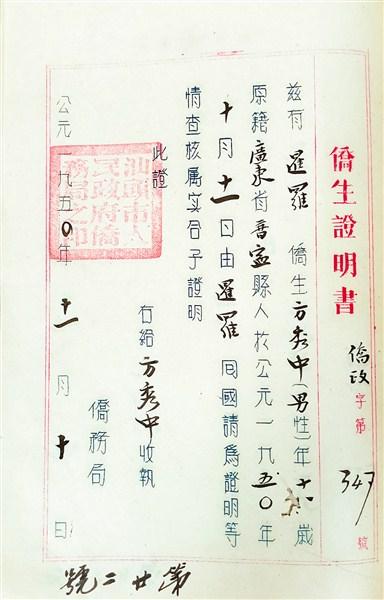 僑生證明書
僑政字第347號
茲有暹羅僑生方秀中(男性)年十歲
原籍廣東省普寧縣人於公元一九五〇年
十月十一日由暹羅囘國請爲證明等
情查核属实合予證明
此證
右給方秀中收執
僑務局
公元一九五〇年十一月十日
汕頭市人
民政府僑
務局之印
第廿二號